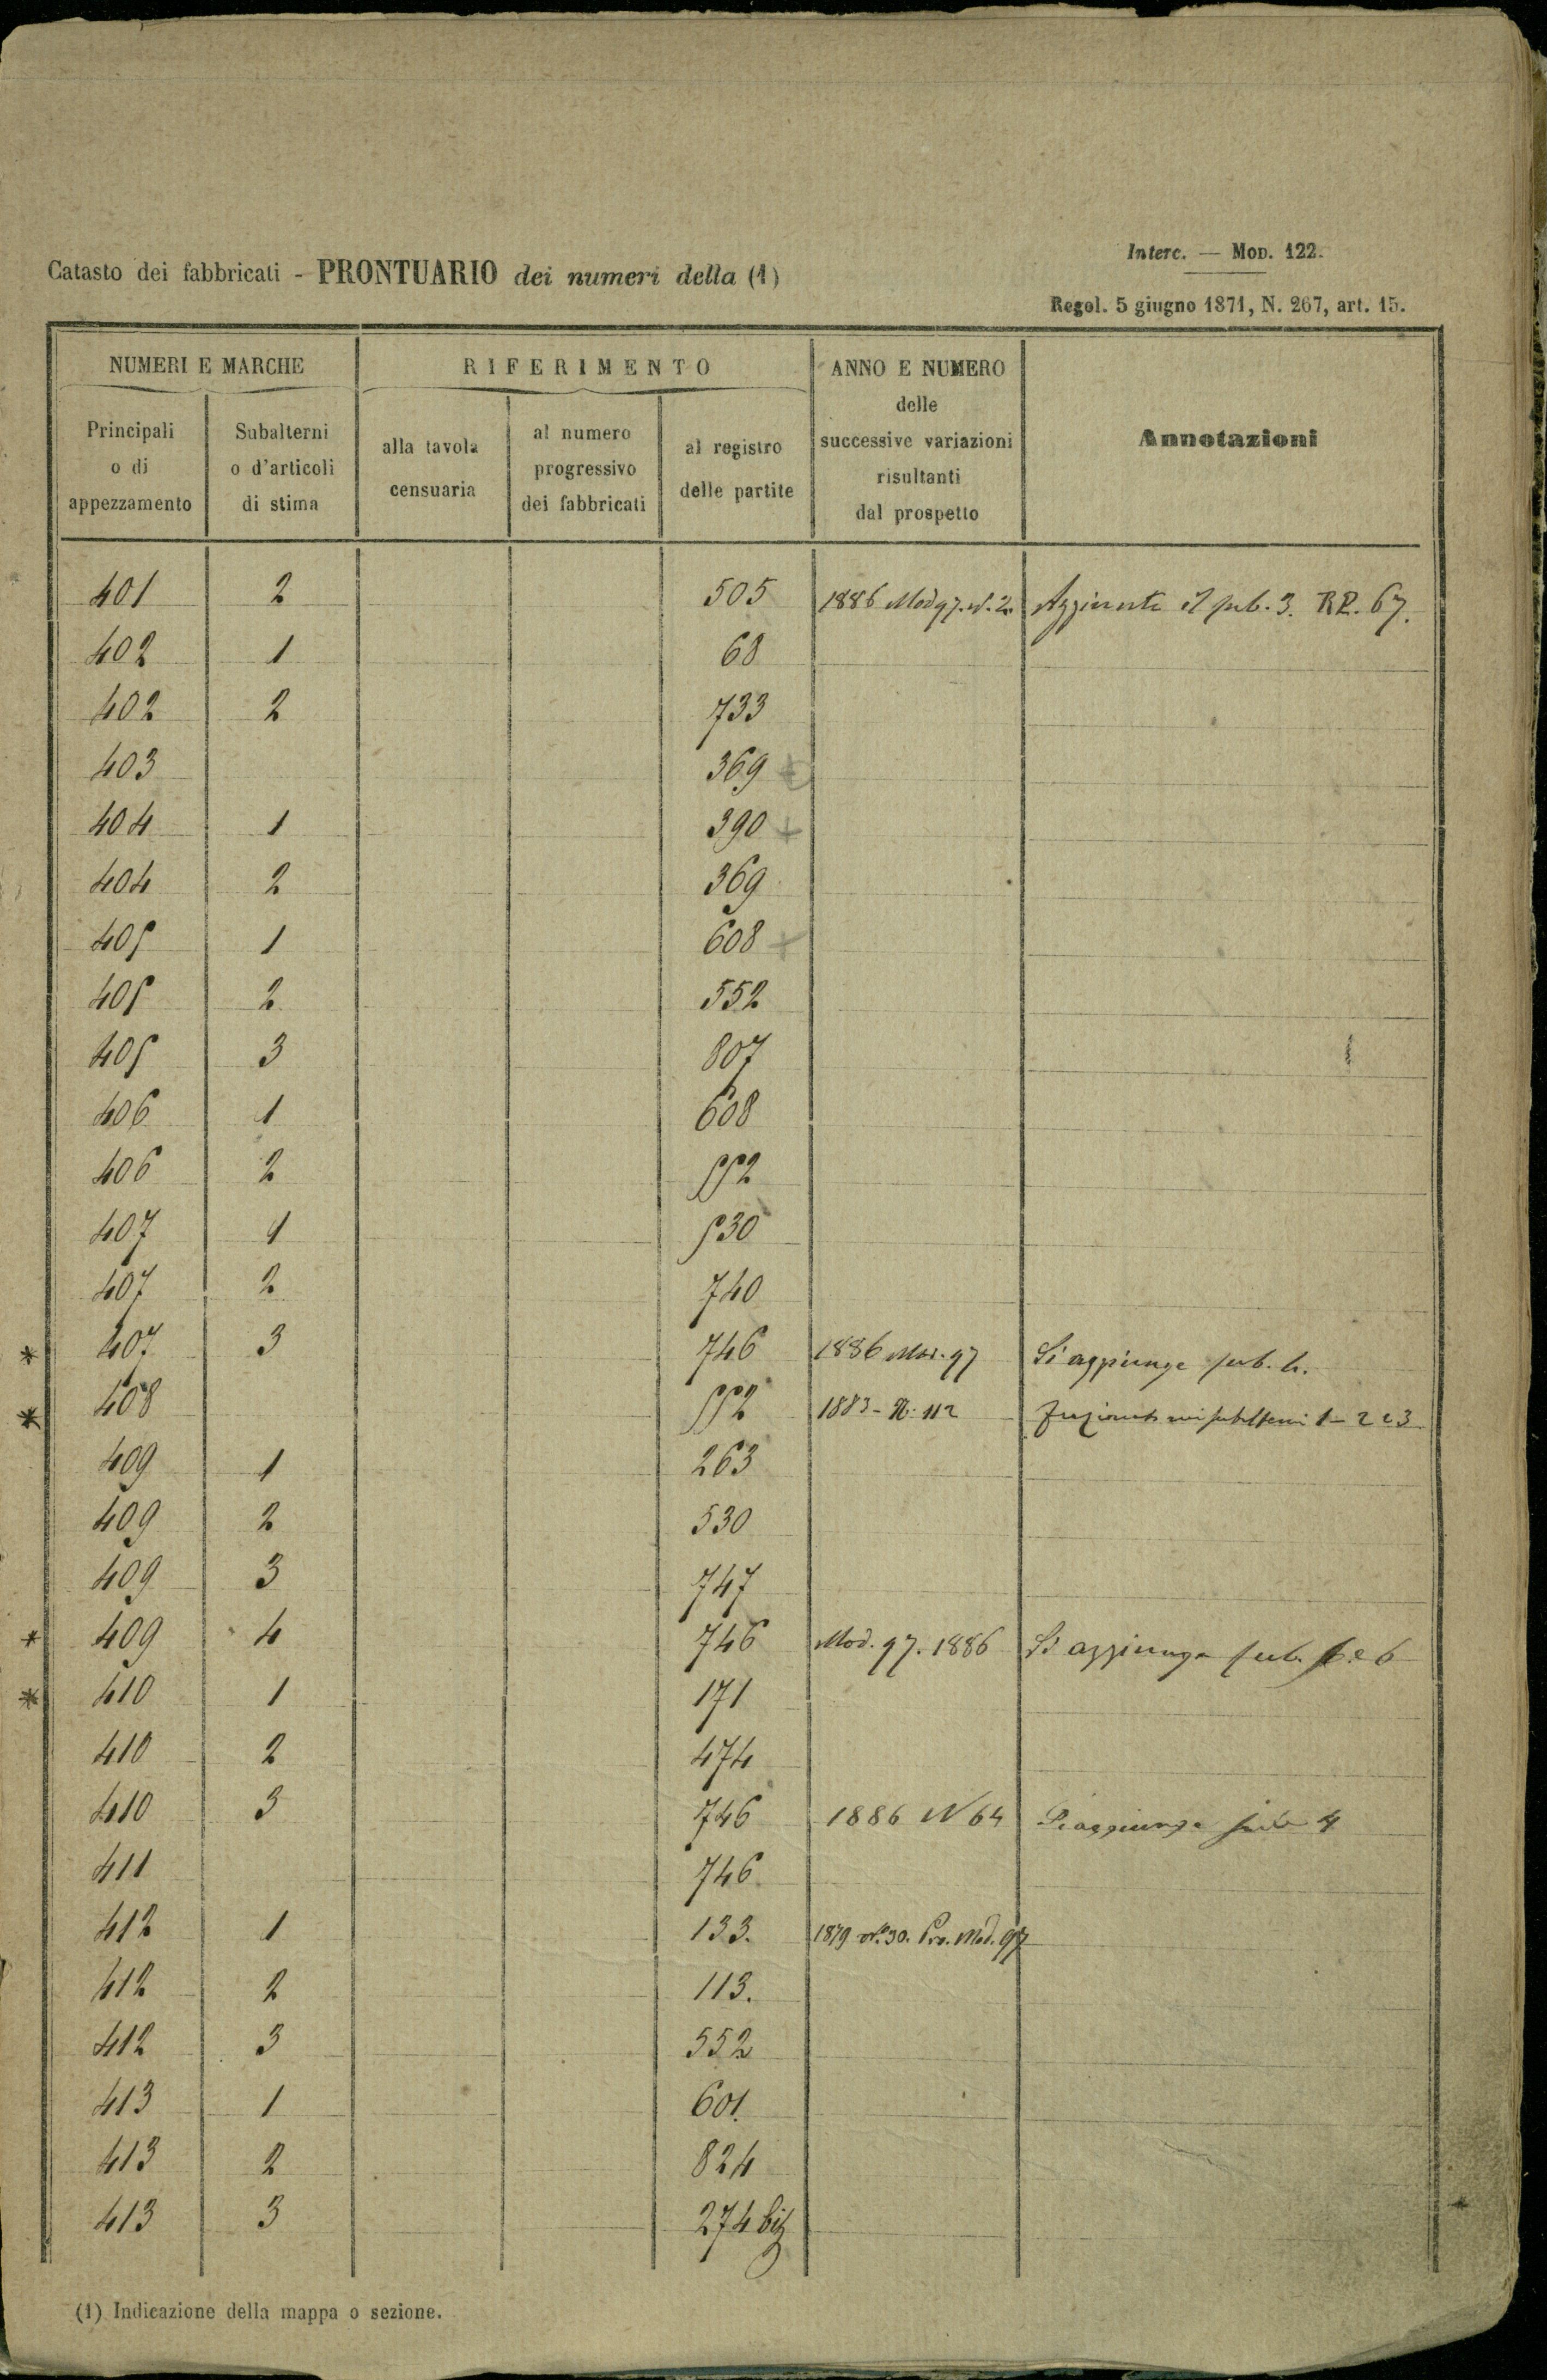 Interc. — Mod. 122.
Catasto dei fabbricati - PRONTUARIO dei numeri della (1)
Regol. 5 giugno 1871, N. 267, art. 15.
NUMERI E MARCHE
RIFERIMENTO
ANNO E NUMERO
delle
successive variazioni
risultanti
dal prospetto
Annotazioni
Principali
o di
appezzamento
Subalterni
o d'articoli
di stima
alla tavola
censuaria
al numero
progressivo
dei fabbricati
al registro
delle partite
401 2 505 1886 Mod 97. N. 2. Aggiunto il sub. 3. RP. 67.
402 1 68
402 2 733
403 369 +
404 1 390 +
404 2 369
405 1 608 +
405 2 552
405 3 807
406 1 608
406 2 552
407 1 530
407 2 740
* 407 3 746 1886 Mod. 97 Si aggiunge sub. 4.
* 408 552 1883 - N. 112 subalterni 1 - 2 e 3
409 1 263
409 2 530
409 3 747
* 409 4 746 Mod. 97. 1886 Si aggiunga sub. 5 e 6
* 410 1 171
410 2 474
410 3 746 1886 N 64 Si aggiunga sub 4
411 746
412 1 133. 1879 N.º 30. Pro. Mod. 97
412 2 113.
412 3 552
413 1 601.
413 2 824
413 3 274 bis
(1) Indicazione della mappa o sezione.